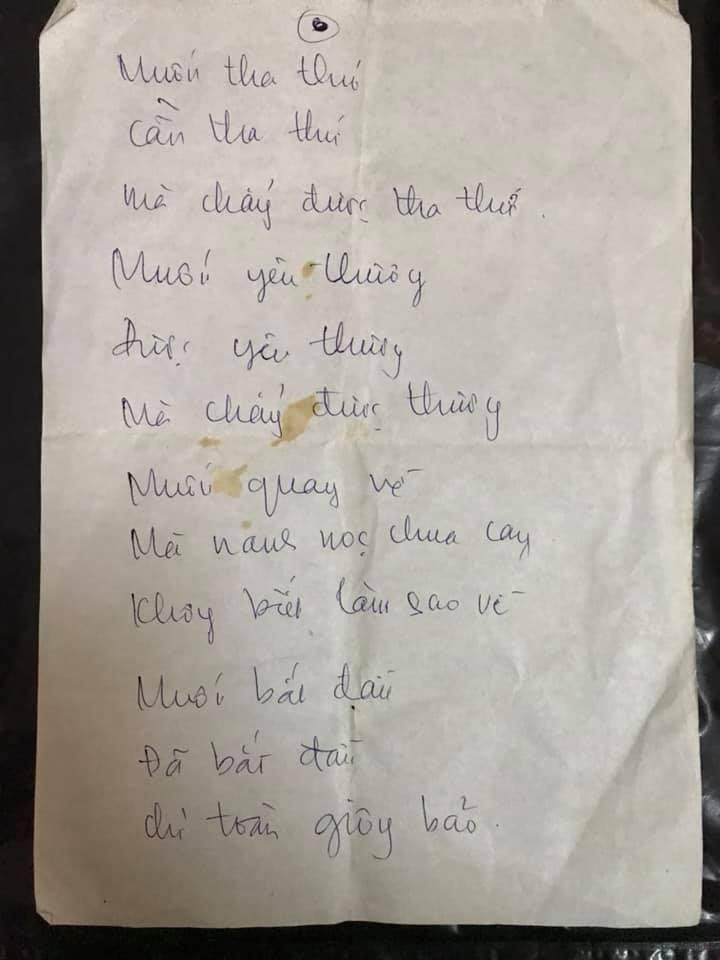 6
Muốn tha thứ
Cần tha thứ
Mà chẳng được tha thứ.
Muốn yêu thương
Được yêu thương
Mà chẳng được thương
Muốn quay về
Mà nang nọc chua cay
Không biết làm sao về
Muốn bắt đầu
Đã bắt đầu
Chỉ toàn giông bão.